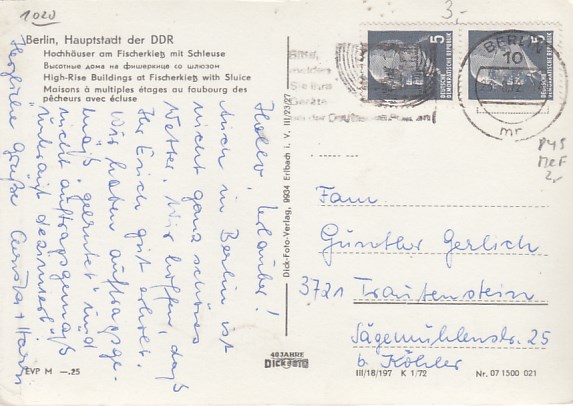 1020
3,-
Berlin, Hauptstadt der DDR
Hochhäuser am Fischerkietz mit Schleuse
Высотные дома на фишеркице со шлюзом
High-Rise Buildings at Fischerkietz with Sluice
Maisons à multiples étages au faubourg des
pêcheurs avec écluse
5 DEUTSCHE DEMOKRATISCHE REPUBLIK
5 DEUTSCHE DEMOKRATISCHE REPUBLIK
BERLIN
10
mr
Bitte,
melden
Sie Ihre
Geräte
bei der Deutschen Post an!
MeF
2,-
Hallo, Urlauber!
Auch in Berlin ist
nicht ganz schönes
Wetter. Wir hoffen, daß
Ihr Euch gut erholt.
Wir haben auftragsge-
mäß "geerntet" und
nicht auftragsgemäß
dezimiert.
Herzliche Grüße
Dick-Foto-Verlag, 9934 Erlbach i. V. III/23/27
Fam
Günther Gerlich
3721 Trautenstein
Sägemühlenstr. 25
b Köhler
EVP M —.25
40 JAHRE
DICK FOTO
III/18/197 K 1/72
Nr. 07 1500 021